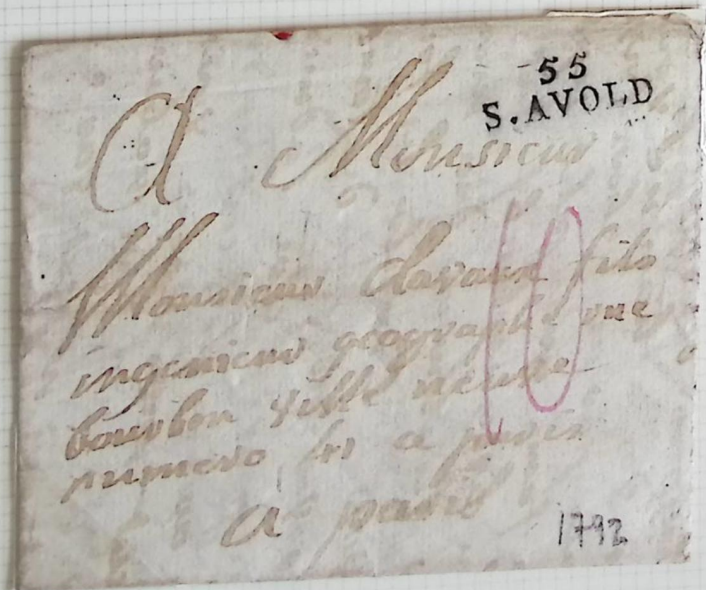 55
S. AVOLD
A Monsieur
Monsieur Clavaux fils
ingenieur geographe rue
bourbon ville neuve
numero a paris
a paris
10
1792